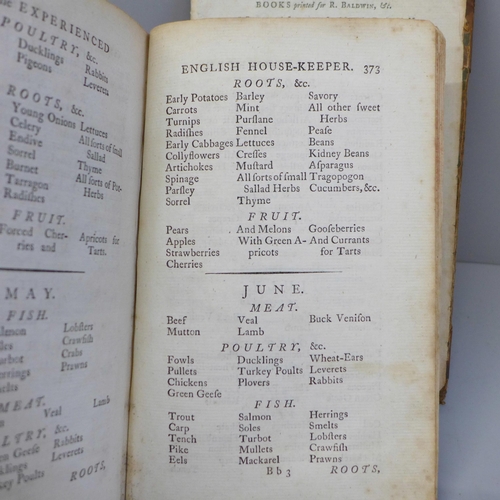 BOOKS printed for R. BALDWIN, &c.
EXPERIENCED
POULTRY, &c.
Ducklings Rabbits
Pigeons Leverets
ROOTS, &c.
Young Onions Lettuces
Celery All sorts of small
Endive Sallad
Sorrel Thyme
Burnet All sorts of Pot-
Tarragon Herbs
Radishes
FRUIT.
Forced Cher- Apricots for
ries and Tarts.
MAY.
FISH.
Salmon Lobsters
Crawfish
Turbot Crabs
Herrings Prawns
MEAT.
Veal Lamb
POULTRY, &c.
Green Geese Rabbits
Ducklings Leverets
Turkey Poults
ROOTS,
ENGLISH HOUSE-KEEPER. 373
ROOTS, &c.
Early Potatoes Barley Savory
Carrots Mint All other sweet
Turnips Purslane Herbs
Radishes Fennel Pease
Early Cabbages Lettuces Beans
Collyflowers Cresses Kidney Beans
Artichokes Mustard Asparagus
Spinage All sorts of small Tragopogon
Parsley Sallad Herbs Cucumbers, &c.
Sorrel Thyme
FRUIT.
Pears And Melons Gooseberries
Apples With Green A- And Currants
Strawberries pricots for Tarts
Cherries
JUNE.
MEAT.
Beef Veal Buck Venison
Mutton Lamb
POULTRY, &c.
Fowls Ducklings Wheat-Ears
Pullets Turkey Poults Leverets
Chickens Plovers Rabbits
Green Geese
FISH.
Trout Salmon Herrings
Carp Soles Smelts
Tench Turbot Lobsters
Pike Mullets Crawfish
Eels Mackarel Prawns
B b 3 ROOTS,